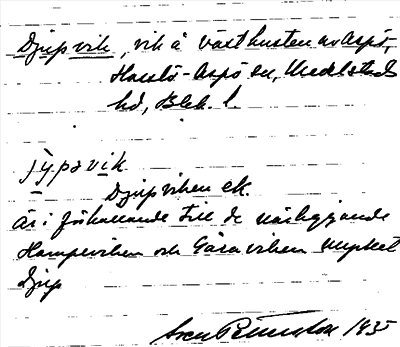 Djupvik, vik å västkusten av Aspö,
Hasslö-Aspö sn, Medelstads
hd, Blek. l.
jỳpavik
Djupviken ek.
Är i förhållande till de närliggande
Hampeviken och Gåsaviken mycket
djup
Sven Benson 1935